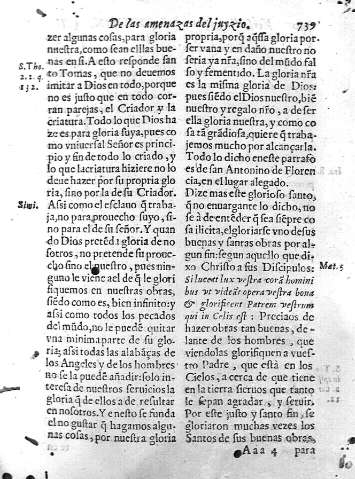 De las amenazas del juyzio. 739
zer algunas cosas, para gloria
nuestra, como sean ellas bue-
nas en si. A esto responde san
to Tomas, que no deuemos
imitar a Dios en todo, porque
no es justo que en todo cor-
ran parejas, el Criador y la
criatura. Todo lo que Dios ha
ze es para gloria suya, pues co
mo vniuersal Señor es princi-
pio y fin de todo lo criado, y
lo que la criatura hiziere no lo
deue hazer por su propria glo
ria, sino por la de su Criador.
Assi como el esclauo q̃ traba-
ja, no para prouecho suyo, si-
no para el de su Señor. Y quan
do Dios pretẽdi gloria de no-
sotros, no pretende su proue-
cho sino el nuestro, pues nin-
guno le viene ael de q̃ le glori
fiquemos en nuestras obras,
siẽdo como es, bien infinito: y
assi como todos los pecados
del mũdo, no le puedẽ quitar
vna minima parte de su glo-
ria; assi todas las alabãças de
los Angeles y de los hombres
no se la puede añadir: solo in-
teresa de nuestros seruicios la
gloria q̃ de ellos a de resultar
en nosotros. Y en esto se funda
el no gustar q̃ hagamos algu-
nas cosas, por nuestra gloria
S. Tho.
2. 2. q.
132.
Simi.
propria, porq̃ aq̃ssa gloria por
ser vana y en daño nuestro no
seria ñra, sino del mũdo fal
so y fementido. La gloria ñra
es la misma gloria de Dios:
pues siẽdo el Dios nuestro, biẽ
nuestro y regalo ñro, a de ser
ella gloria nuestra, y como co
sa tã grãdiosa, quiere q̃ traba-
jemos mucho por alcançarla.
Todo lo dicho en este parrafo
es de san Antonino de Floren
cia, en el lugar alegado.
Dize mas este glorioso santo,
q̃ no enuargante lo dicho, no
se à de entẽder q̃ sea siẽpre co
sa ilicita, el gloriarse vno de sus
buenas y santas obras por al-
gun fin: segun aquello que di-
xo Christo a sus Dicipulos:
Si luceat lux vestra corã homini
bus vt videãt opera vestra bona
& glorificent Patrem vestrum
qui in Celis est : Preciaos de
hazer obras tan buenas, de-
lante de los hombres , que
viendolas glorifiquen a vues-
tro Padre , que està en los
Cielos, a cerca de que tiene
en la tierra sieruos que tanto
le sepan agradar, y seruir.
Por este justo y santo fin, se
gloriaron muchas vezes los
Santos de sus buenas obras,
Mat. 5
Aaa 4 para